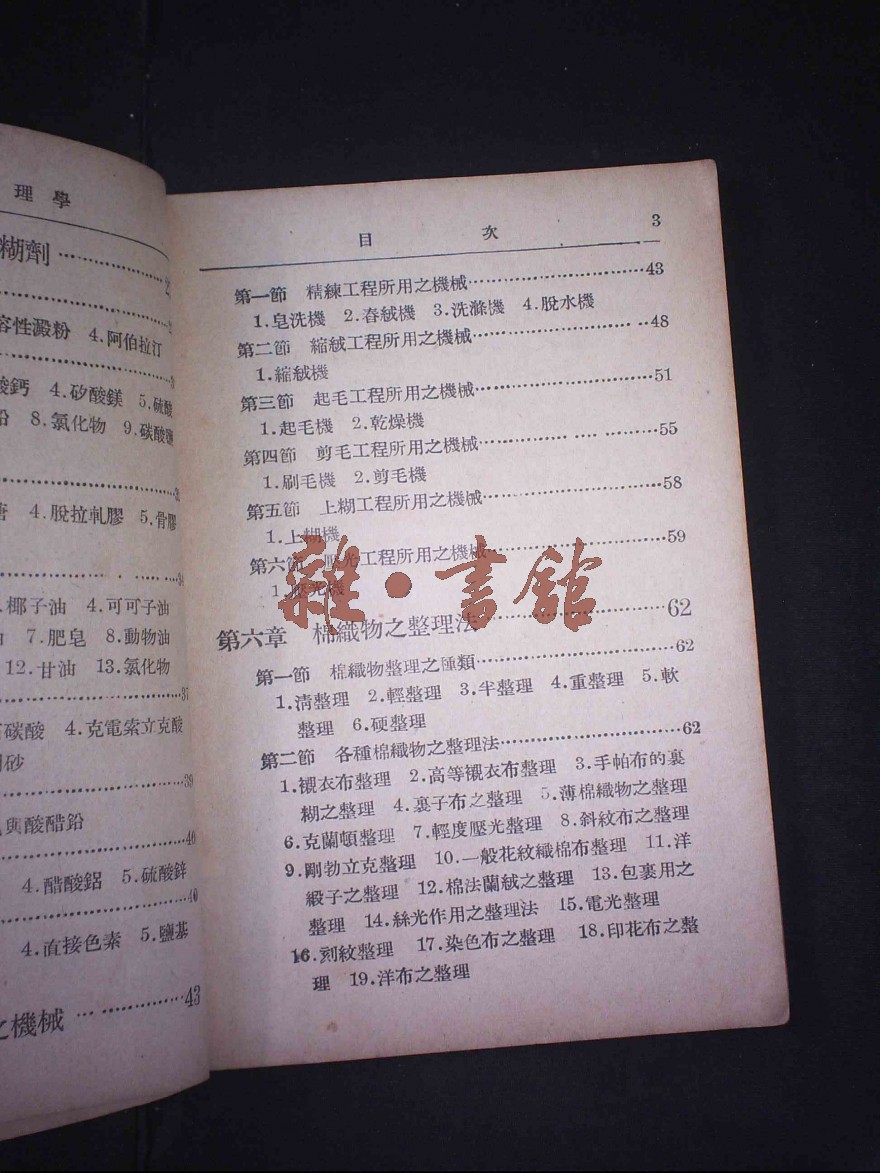 理學
糊劑
容性澱粉 4.阿伯拉汀
酸鈣 4.矽酸鎂 5.硫酸
鉛 8.氯化物 9.碳酸鹽
4.脫拉軋膠 5.骨膠
椰子油 4.可可子油
7.肥皂 8.動物油
12.甘油 13.氯化物
37
碳酸 4.克電索立克酸
砂
39
與酸醋鉛
40
4.醋酸鋁 5.硫酸鋅
40
4.直接色素 5.鹽基
之機械……43
目次 3
第一節 精練工程所用之機械……43
1.皂洗機 2.舂絨機 3.洗滌機 4.脫水機
第二節 縮絨工程所用之機械……48
1.縮絨機
第三節 起毛工程所用之機械……51
1.起毛機 2.乾燥機
第四節 剪毛工程所用之機械……55
1.刷毛機 2.剪毛機
第五節 上糊工程所用之機械……58
1.上糊機
第六節 壓光工程所用之機械……59
1.壓光機
雜·書館
第六章 棉織物之整理法……62
第一節 棉織物整理之種類……62
1.清整理 2.輕整理 3.半整理 4.重整理 5.軟
整理 6.硬整理
第二節 各種棉織物之整理法……62
1.襯衣布整理 2.高等襯衣布整理 3.手帕布的裏
糊之整理 4.裏子布之整理 5.薄棉織物之整理
6.克蘭頓整理 7.輕度壓光整理 8.斜紋布之整理
9.剛勃立克整理 10.一般花紋織棉布整理 11.洋
緞子之整理 12.棉法蘭絨之整理 13.包裹用之
整理 14.絲光作用之整理法 15.電光整理
16.刻紋整理 17.染色布之整理 18.印花布之整
理 19.洋布之整理